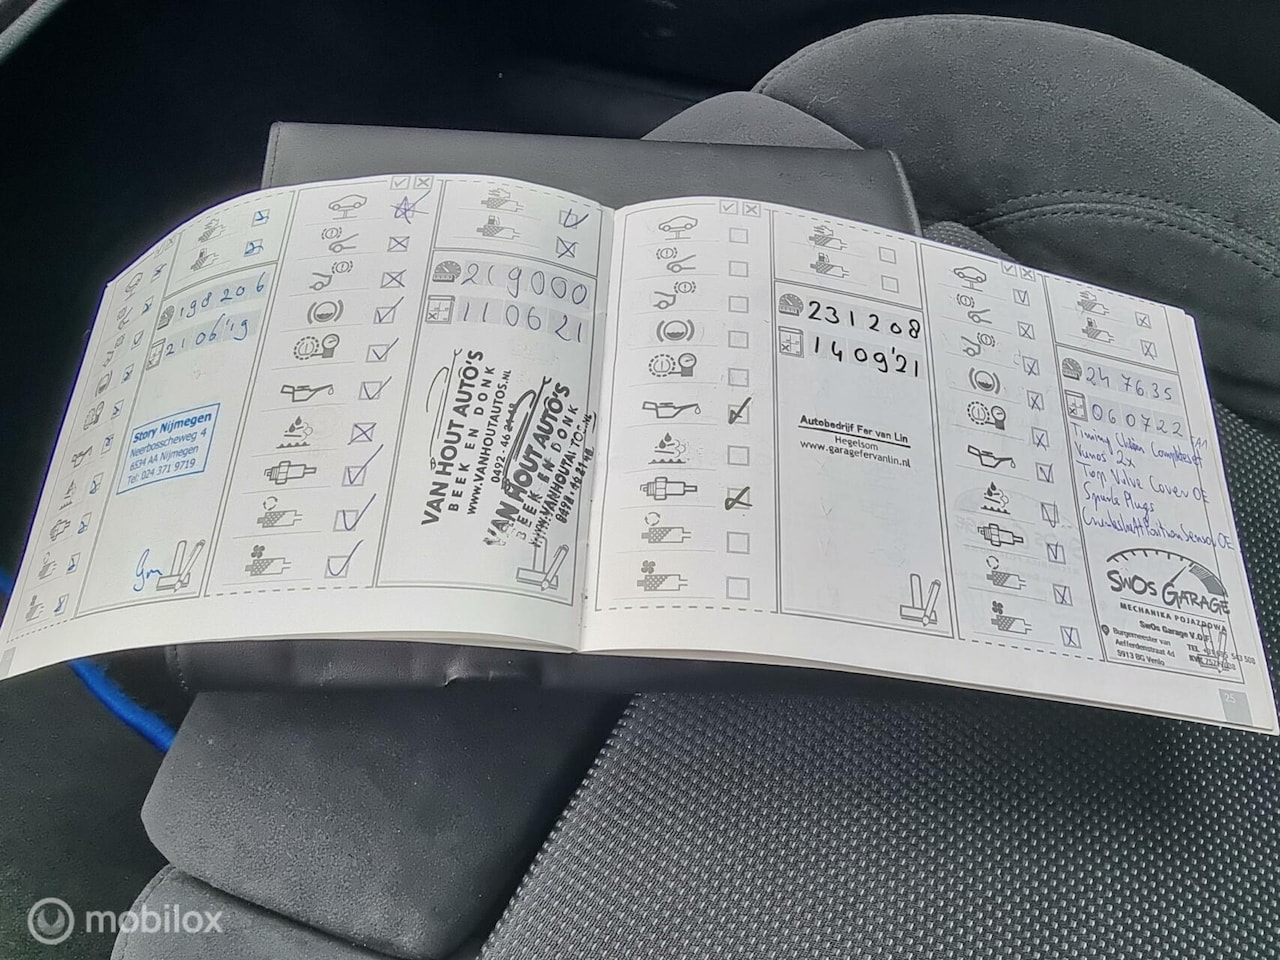 198206
21 06'19
Story Nijmegen
Neerbosscheweg 4
6534 AA Nijmegen
Tel: 024 371 9719
219000
11 06 21
VAN HOUT AUTO'S
BEEK EN DONK
www.VANHOUTAUTOS.NL
0492 - 46
VAN HOUT AUTO'S
BEEK EN DONK
231208
14 09'21
Autobedrijf Fer van Lin
Hegelsom
www.garagefervanlin.nl
247635
06 07 22
Timing Chain Complete set
Vanos 2x
Top Valve Cover OE
Spark Plugs
Crankshaft Position Sensor OE
SwOs GARAGE
MECHANIKA POJAZDOWA
SwOs Garage V.O.F.
Burgemeester van
Aefferdenstraat 4d
5913 BG Venlo
TEL
KVK
25
mobilox